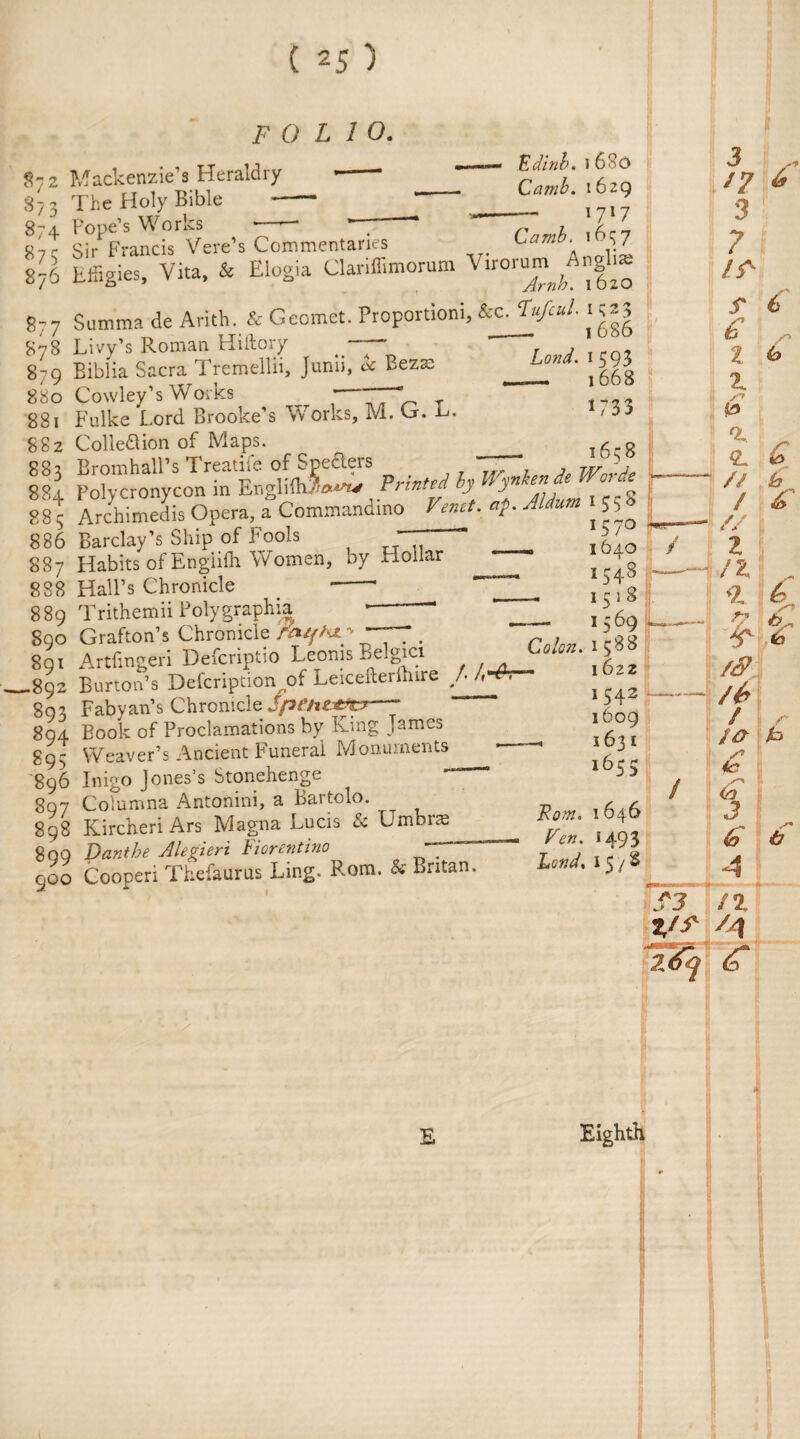 ( 25 )
FOLIO.
872 Mackenzie's Heraldry — — Edinb. 1680 3
873 The Holy Bible — — Camb. 1629 17 6
874 Pope's Works — — — 1717 3
875 Sir Francis Vere's Commentaries Camb. 1657 7
876 Effigies, Vita, & Elogia Clariſſimorum Virorum Angliæ
Arnh. 1620 15
877 Summa de Arith. & Geomet. Proportioni, &c. Tuſcul. 1523 5 6
878 Livy's Roman Hiſtory — — 1686 6
879 Biblia Sacra Tremellii, Junii, & Bezæ Lond. 1593 2 6
880 Cowley's Works — — 1668 2
881 Fulke Lord Brooke's Works, M. G. L. 1733 6
882 Collection of Maps. 2
883 Bromhall's Treatiſe of Specters — 1658 2 6
884 Polycronycon in Engliſh Printed by Wynken de Worde 11 6
885 Archimedis Opera, a Commandino Venet. ap. Aldum 1558 1 6
886 Barclay's Ship of Fools — 1570 11
887 Habits of Engliſh Women, by Hollar — 1640 1 2
888 Hall's Chronicle — — 1548 12
889 Trithemii Polygraphia — — 1518 2 6
890 Grafton's Chronicle — — 1569 7 6
891 Artſingeri Deſcriptio Leonis Belgici Colon. 1588 4 6
892 Burton's Deſcription of Leiceſterſhire 1622 18
893 Fabyan's Chronicle — 1542 16
894 Book of Proclamations by King James 1609 1
895 Weaver's Ancient Funeral Monuments — 1631 10 6
896 Inigo Jones's Stonehenge — 1655 6
897 Columna Antonini, a Bartolo. 1 6
898 Kircheri Ars Magna Lucis & Umbræ Rom. 1646 3
899 Danthe Alegieri Fiorentino — Ven. 1493 6 6
900 Cooperi Theſaurus Ling. Rom. & Britan. Lond. 1578 4
53 12
215 14
269 6
E Eighth